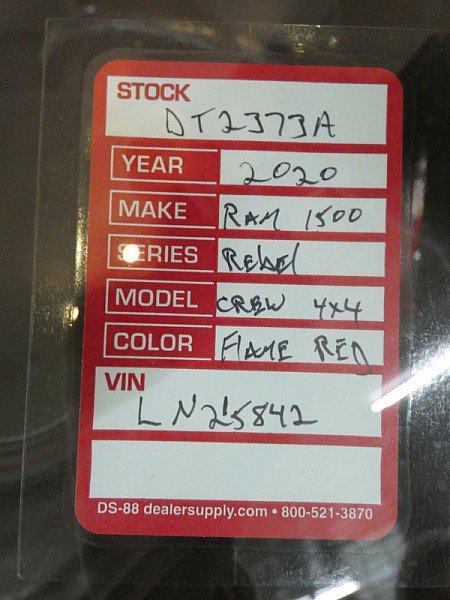 STOCK
DT2373A
YEAR 2020
MAKE RAM 1500
SERIES Rebel
MODEL CREW 4x4
COLOR FLAME RED
VIN
LN215842
DS-88 dealersupply.com • 800-521-3870